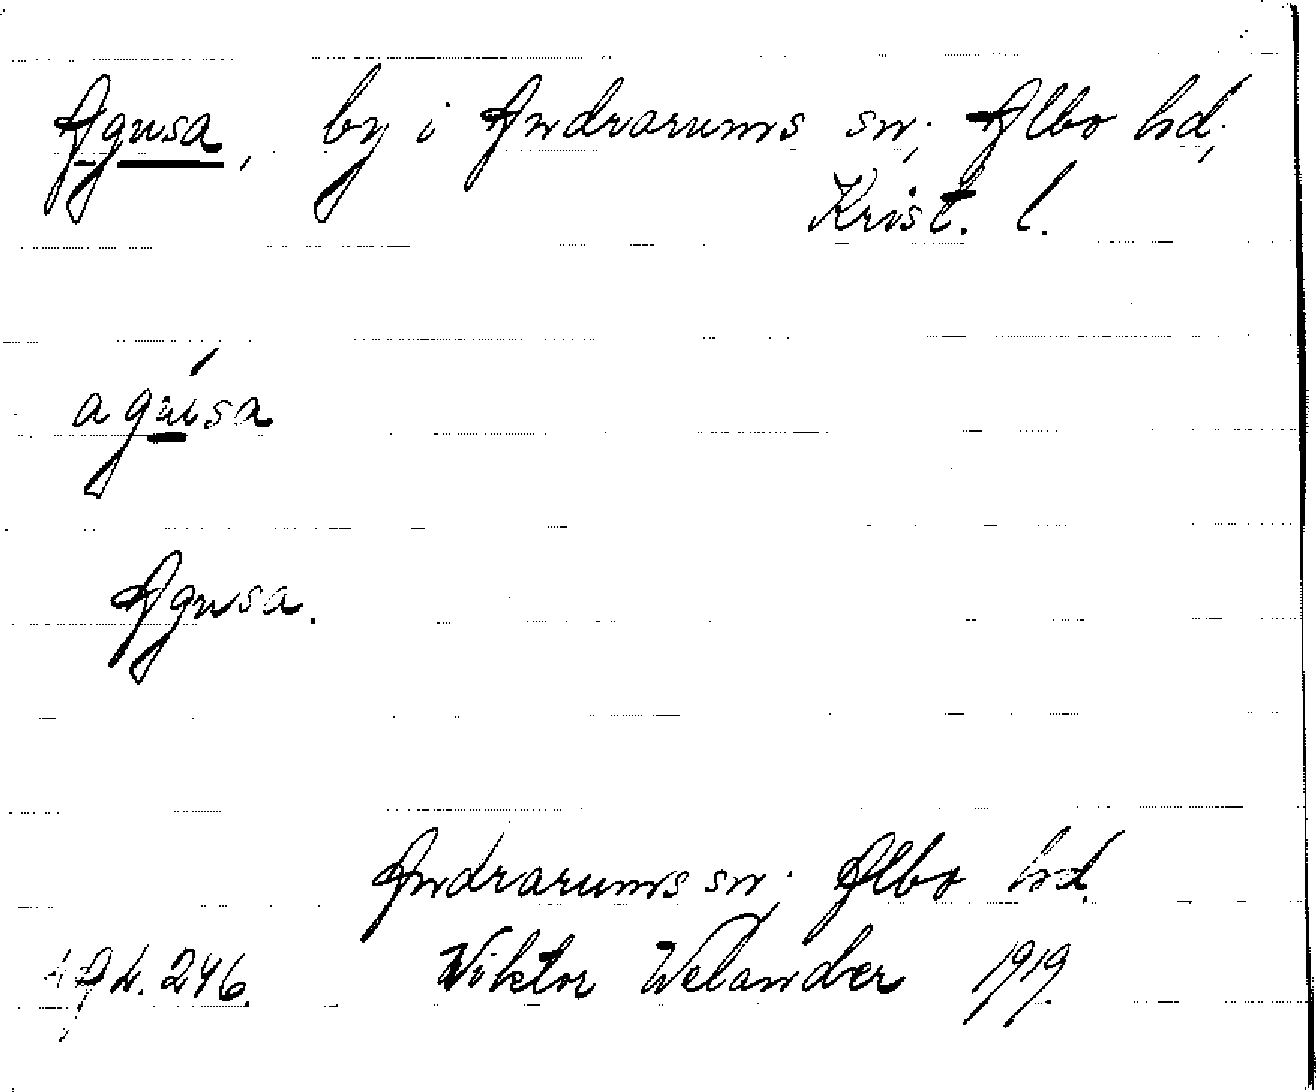 Agusa, by i Andrarums sn; Albo hd,
Krist. l.
agúsa
Agusa.
Andrarums sn; Albo hd.
246. Viktor Welander 1919.